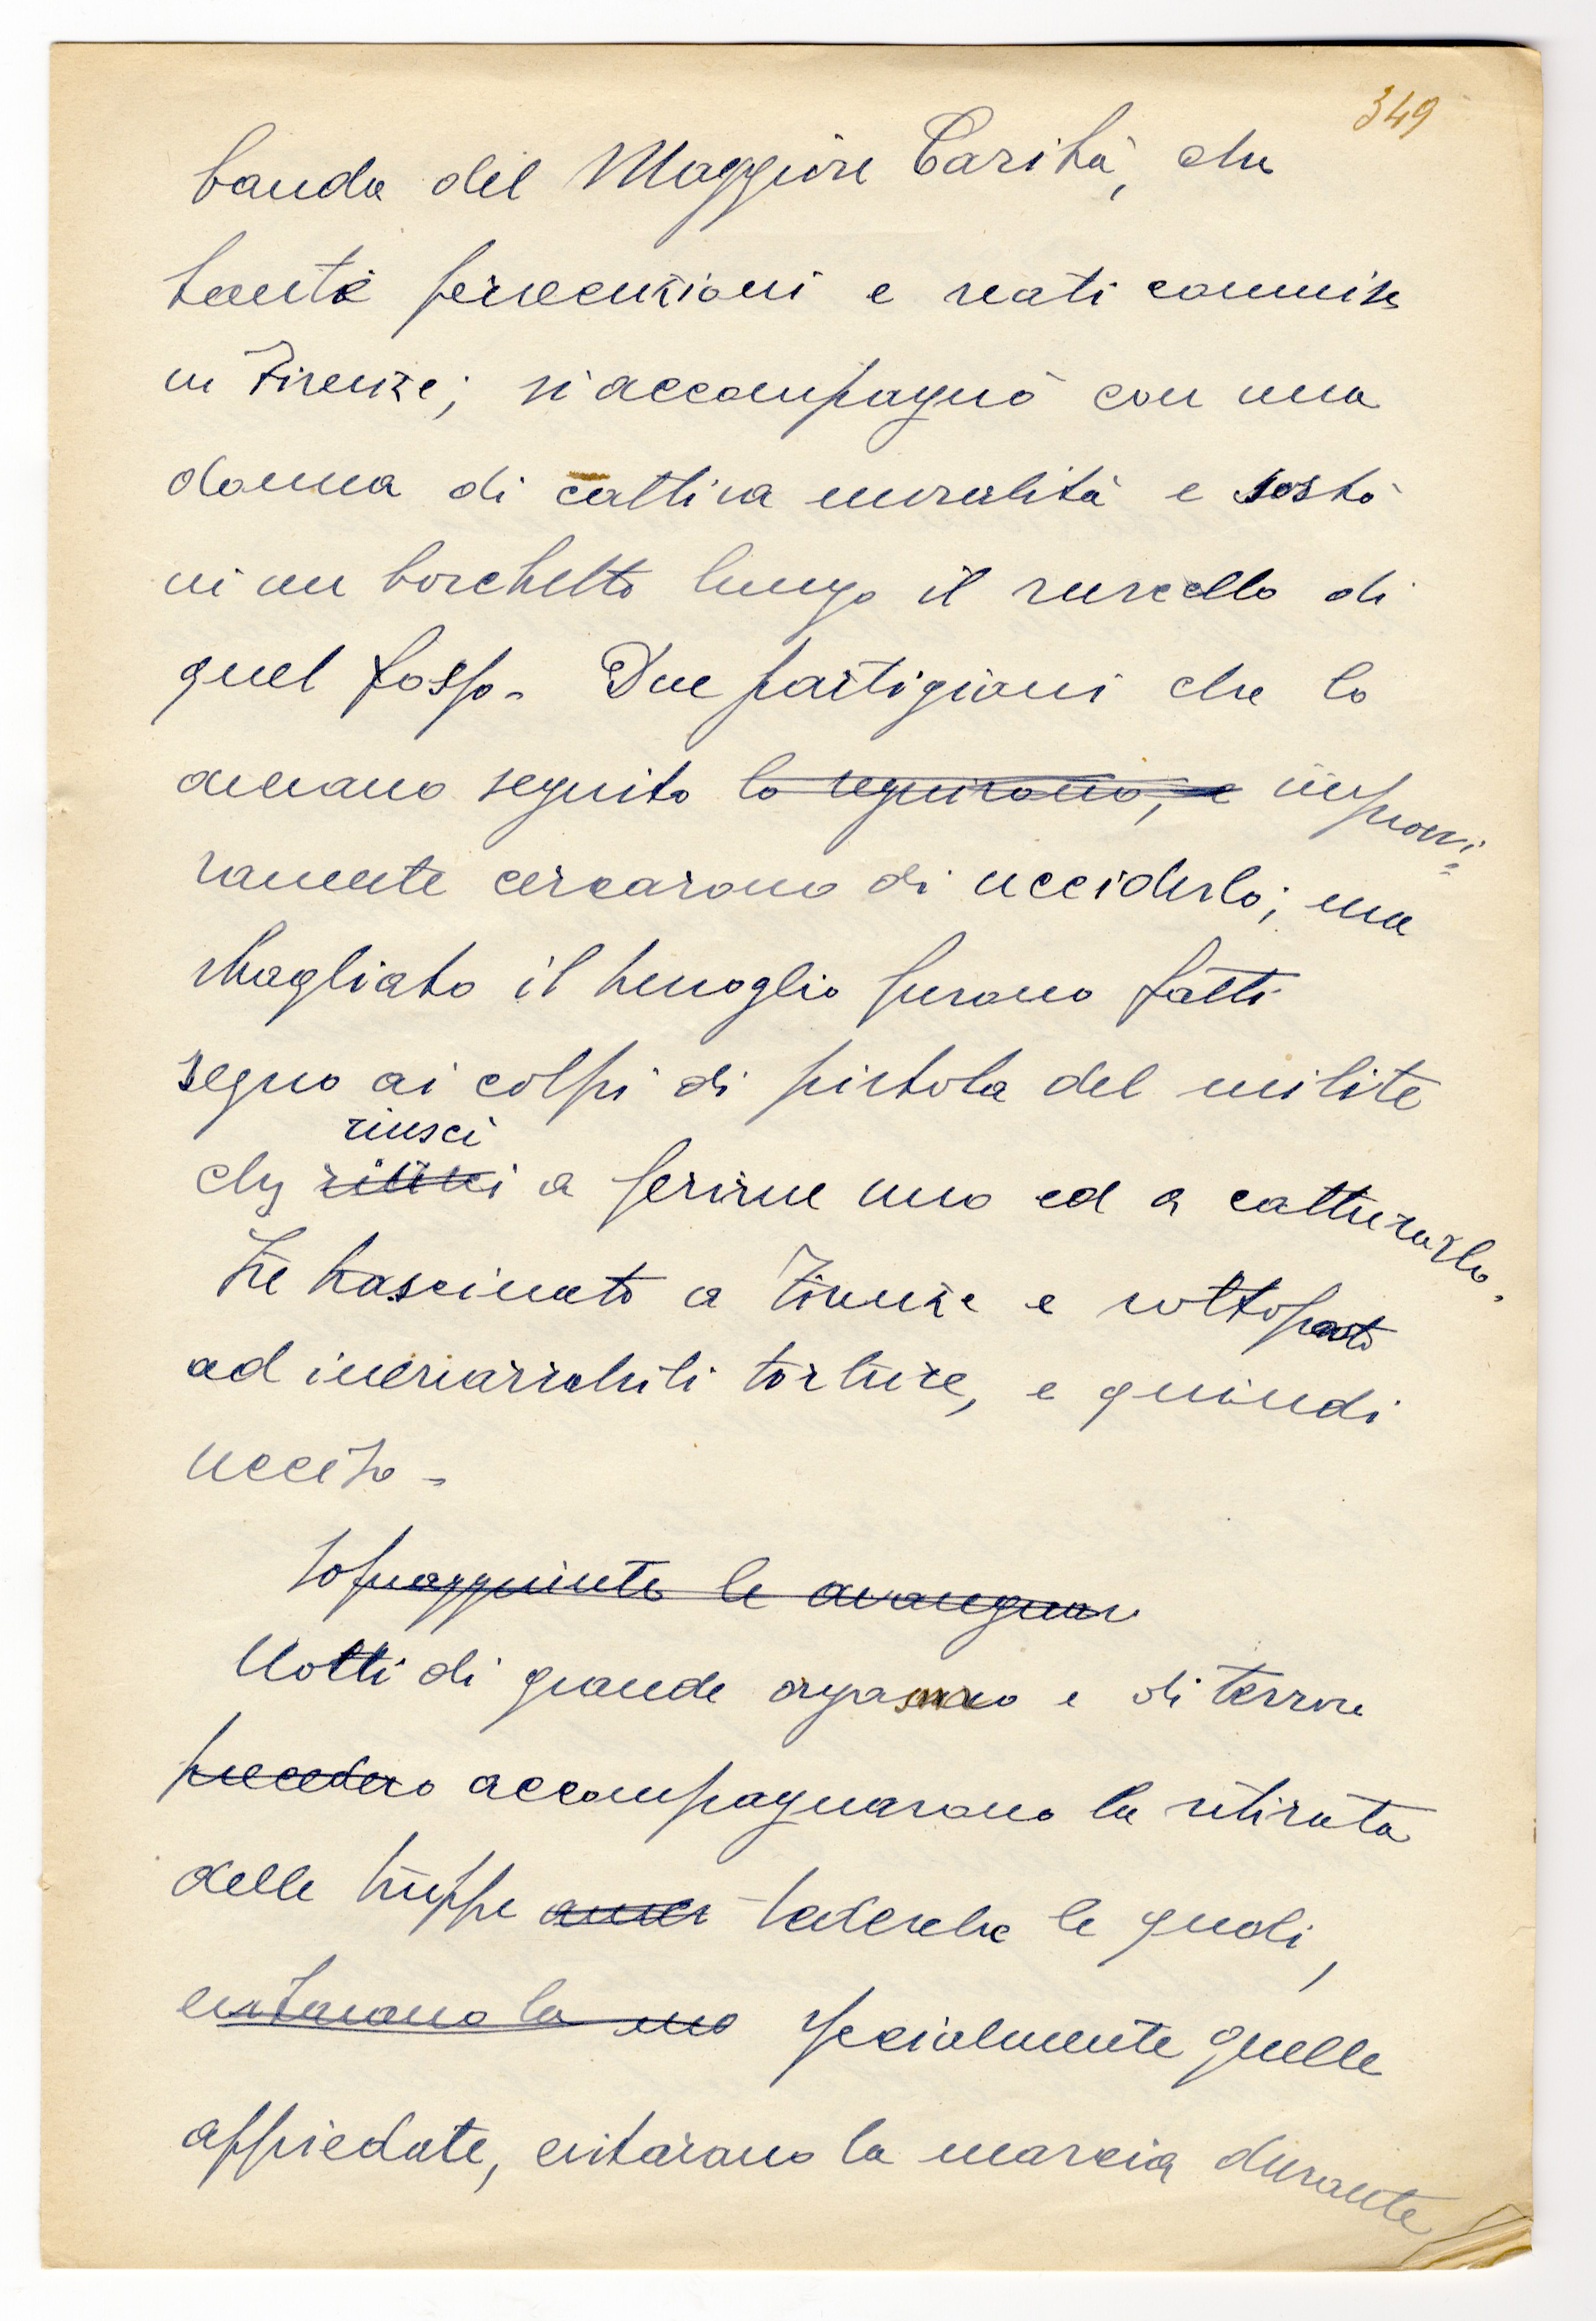 349
banda del Maggiore Carità, che
tante persecuzioni e reati commise
in Firenze; si accompagnò con una
donna di cattiva moralità e sostò
in un boschetto lungo il ruscello di
quel fosso. Due partigiani che lo
avevano seguito lo seguirono, e improvvi=
samente cercarono di ucciderlo; ma
sbagliato il bersaglio furono fatti
segno ai colpi di pistola del milite
riuscì
che a ferirne uno ed a catturarlo.
Fu trascinato a Firenze e sottoposto
ad inenarrabili torture, e quindi
ucciso.
Sopraggiunte le avanguar
Notti di grande orgasmo e di terrore
precedero accompagnarono la ritirata
delle truppe tedesche le quali,
evitarono la specialmente quelle
appiedate, evitarono la marcia durante